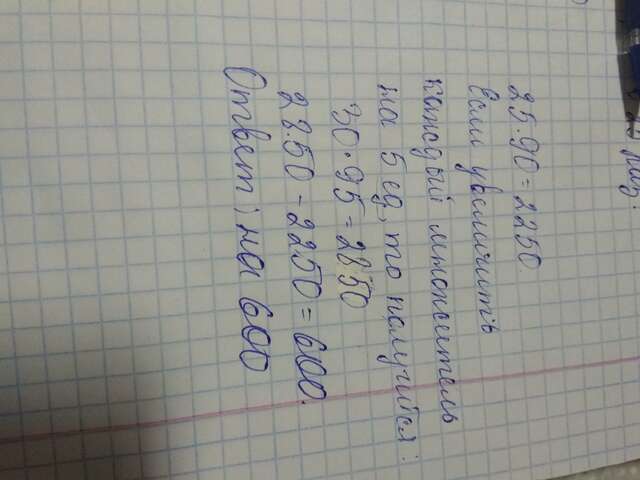 25·90=2250.
Если увеличить
каждый множитель
на 5 ед, то получится:
30·95=2850
2850-2250=600.
Ответ; на 600